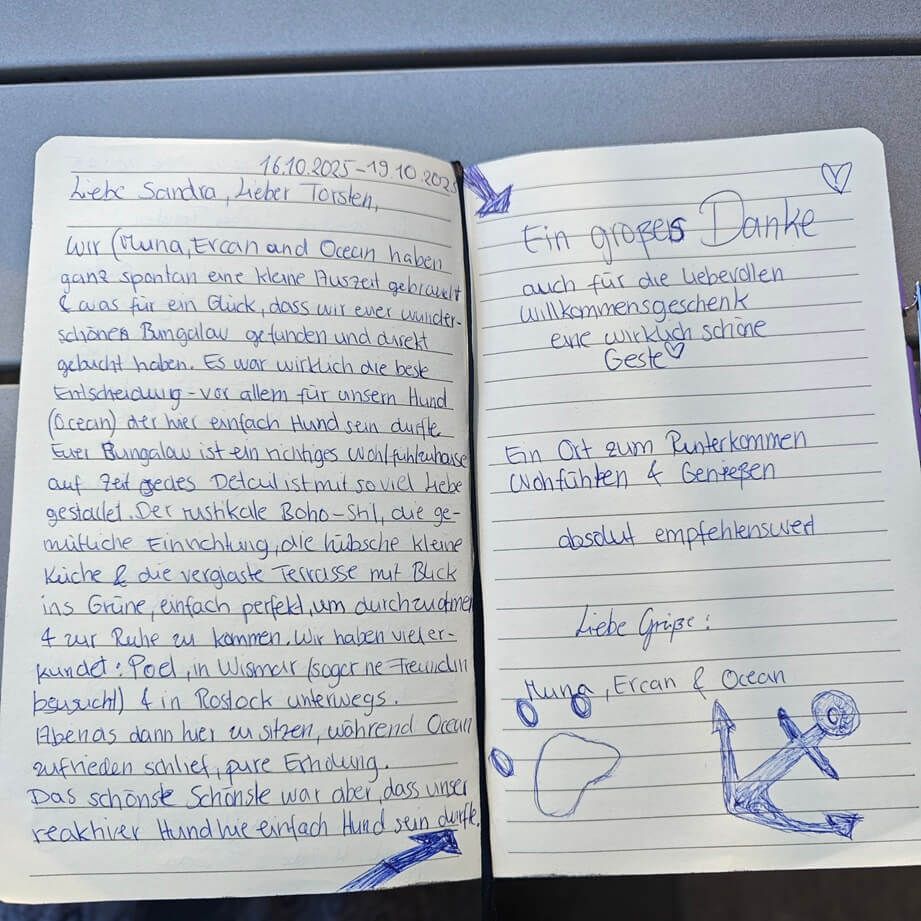 16.10.2025-19.10.2025
Liebe Sandra, Lieber Torsten,
Wir (Muna, Ercan and Ocean haben
ganz spontan eine kleine Auszeit gebraucht
& was für ein Glück, dass wir euer wunder-
schönes Bungalow gefunden und direkt
gebucht haben. Es war wirklich die beste
Entscheidung - vor allem für unsern Hund
(Ocean) der hier einfach Hund sein durfte
Euer Bungalow ist ein richtiges Wohlfühlzuhause
auf Zeit jedes Detail ist mit so viel Liebe
gestaltet. Der rustikale Boho-Stil, die ge-
mütliche Einrichtung, die hübsche kleine
Küche & die verglaste Terrasse mit Blick
ins Grüne, einfach perfekt, um durchzuatmen
& zur Ruhe zu kommen. Wir haben viel er-
kundet: Poel, in Wismar (sogar ne Freundin
besucht) & in Rostock unterwegs.
Abends dann hier zu sitzen, während Ocean
zufrieden schlief, pure Erholung.
Das schönste Schönste war aber, dass unser
reaktiver Hund hie einfach Hund sein durfte.
Ein großes Danke
auch für die liebevollen
willkommensgeschenk
eine wirklich schöne
Geste
Ein Ort zum Runterkommen
Wohfühlen & Genießen
absolut empfehlenswert
Liebe Grüße:
Muna, Ercan & Ocean